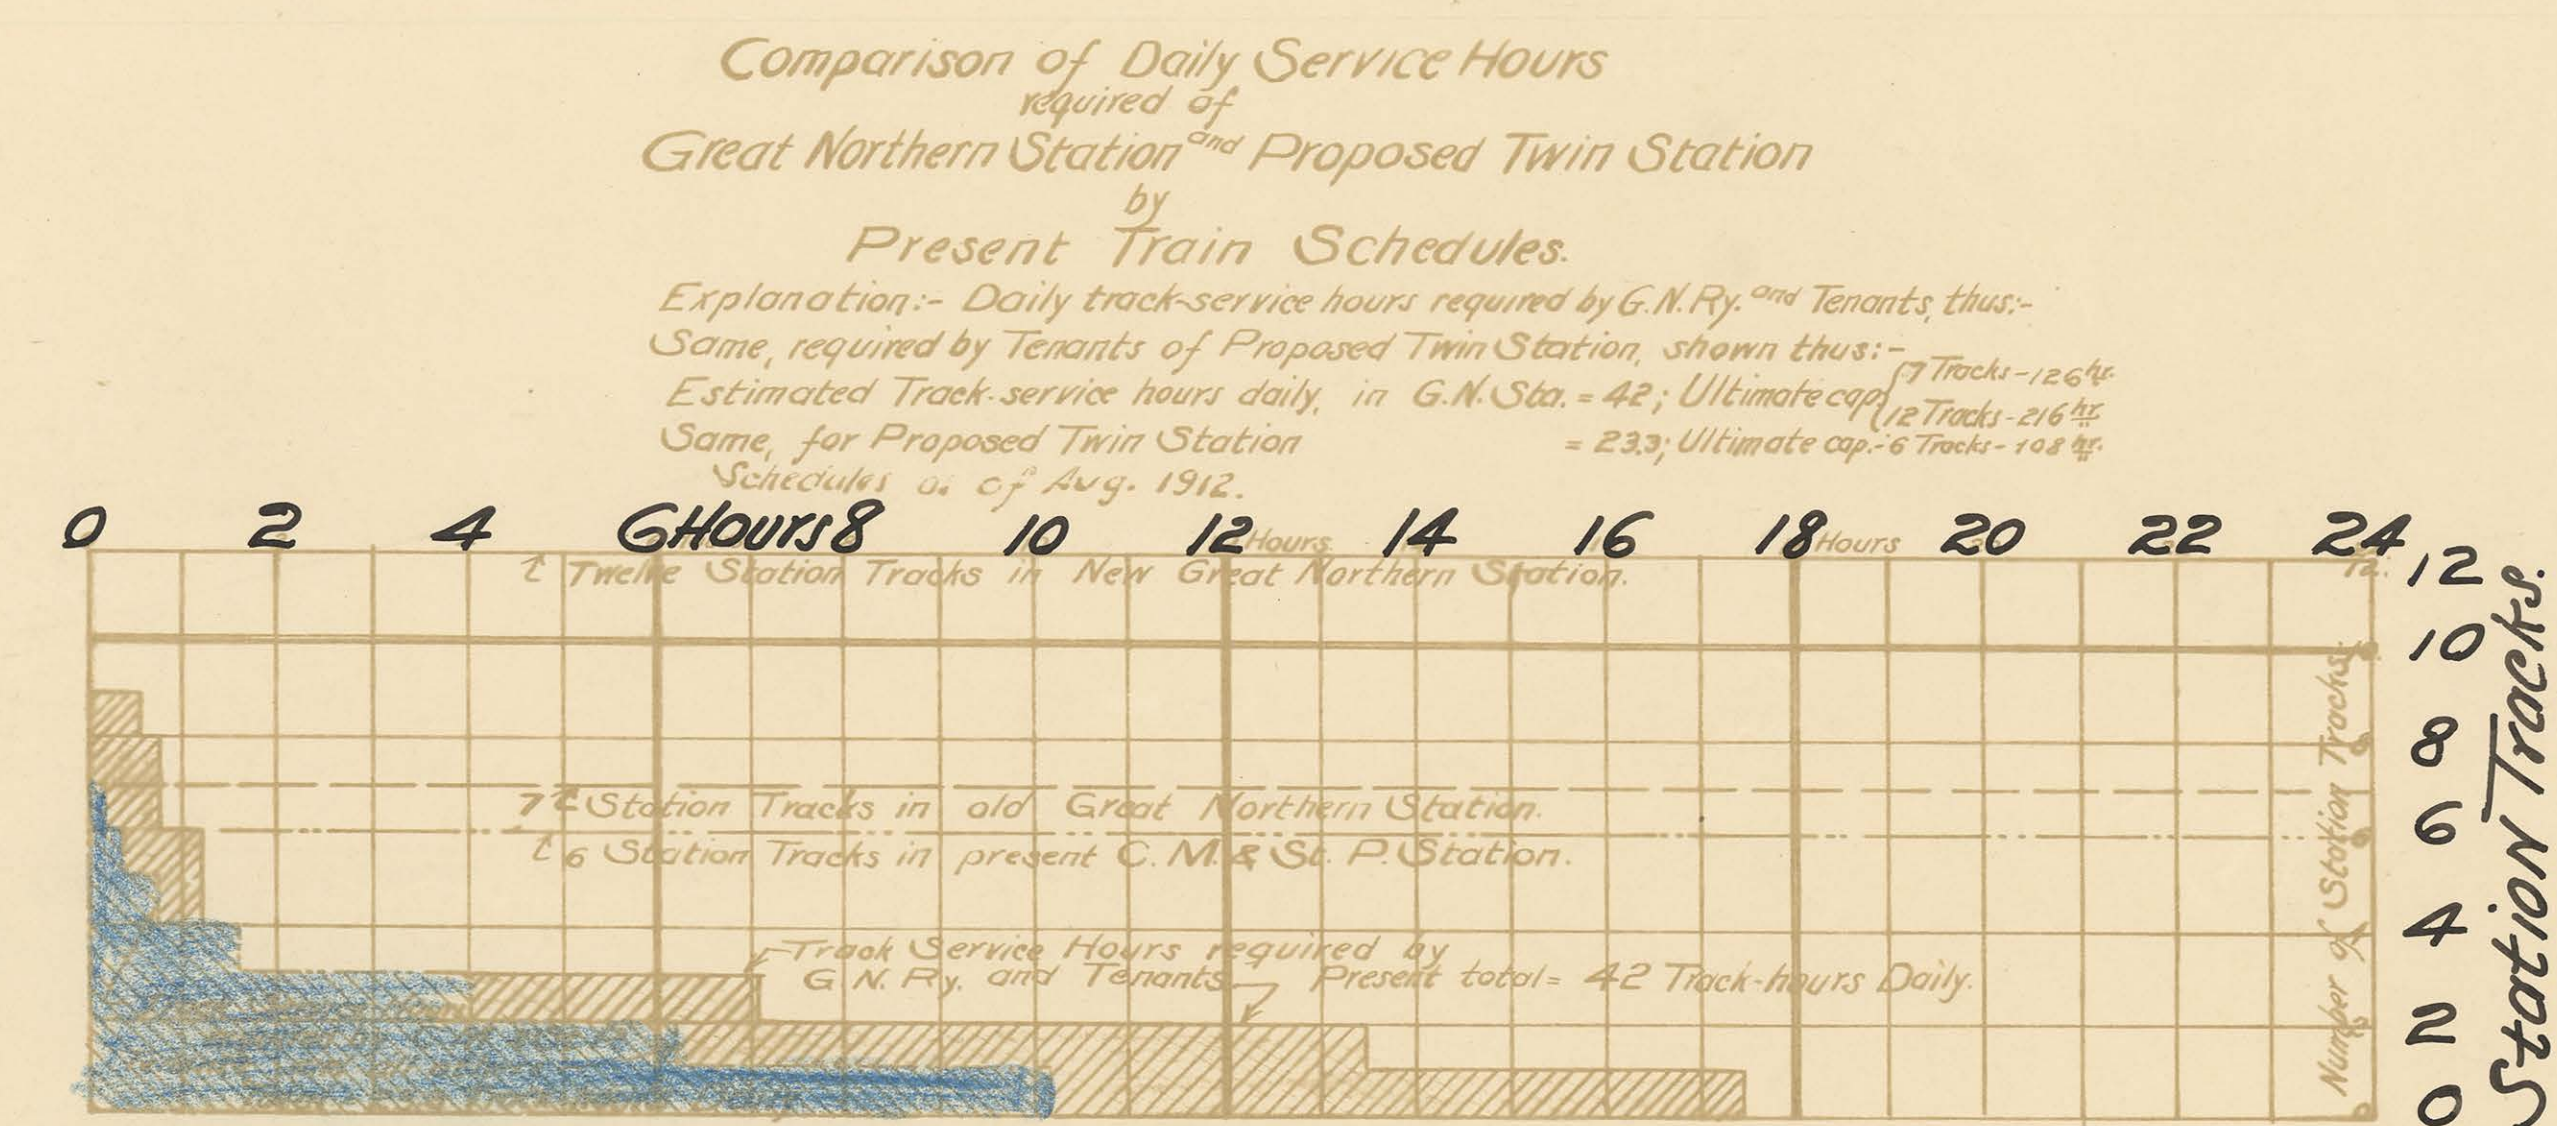 Comparison of Daily Service Hours
required of
Great Northern Station and Proposed Twin Station
by
Present Train Schedules.
Explanation:- Daily track-service hours required by G.N.Ry. and Tenants, thus:-
Same, required by Tenants of Proposed Twin Station, shown thus:-
Estimated Track-service hours daily, in G.N. Sta. = 42; Ultimate cap. { 7 Tracks - 126 hr.
12 Tracks - 216 hr.
Same, for Proposed Twin Station = 23.3; Ultimate cap.- 6 Tracks - 108 hr.
Schedules as of Aug. 1912.
0 2 4 6 Hours 8 10 12 Hours 14 16 18 Hours 20 22 24
Twelve Station Tracks in New Great Northern Station.
7 Station Tracks in old Great Northern Station.
6 Station Tracks in present C. M. & St. P. Station.
Track Service Hours required by
G. N. Ry. and Tenants
Present total = 42 Track-hours Daily.
Number of Station Tracks.
12
10
8
6
4
2
0
12
10
8
6
4
2
0
Station Tracks.